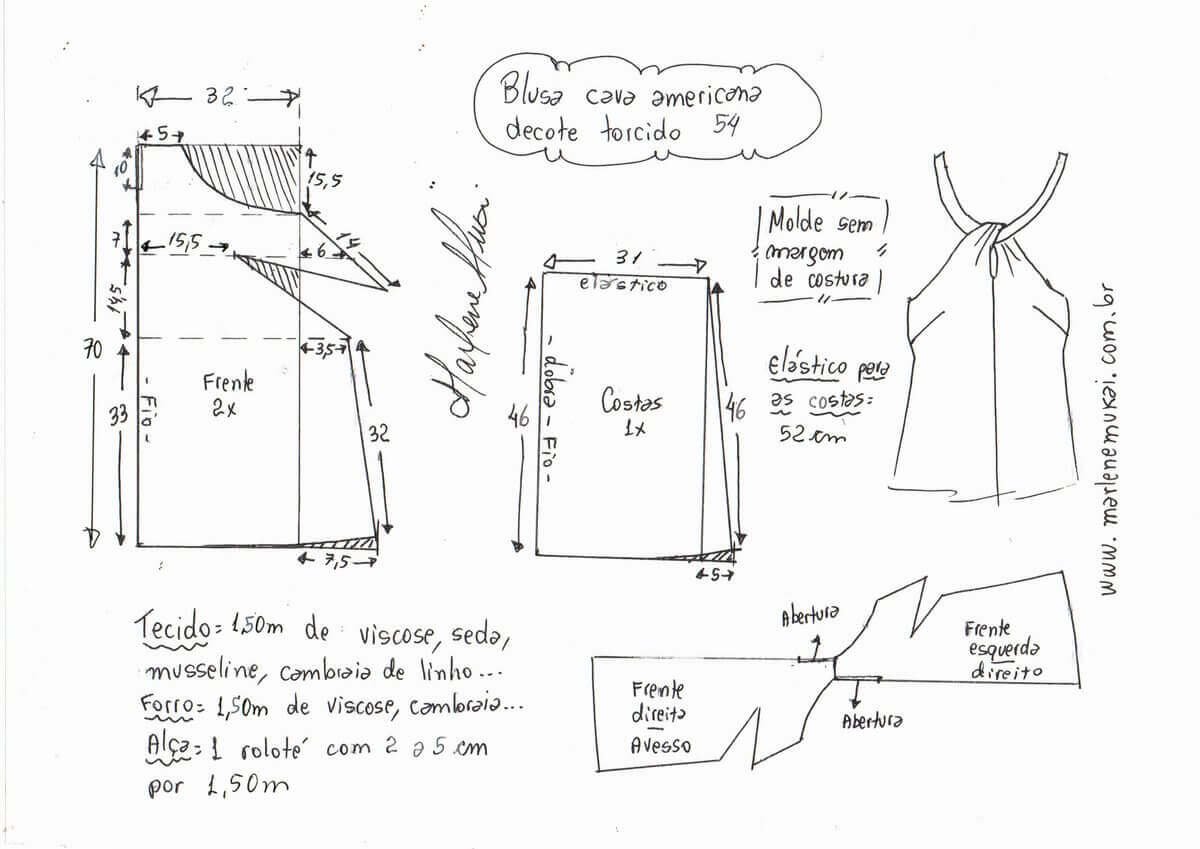 Blusa cava americana
decote torcido 54
32
5
10
15,5
7
15,5
6
14,5
3,5
70
33
- Fio -
Frente
2x
32
7,5
Marlene Mukai
31
elástico
46
- dobra - Fio -
Costas
1x
46
5
Molde sem
margem
de costura
Elástico para
as costas:
52 cm
www.marlenemukai.com.br
Tecido = 1,50m de viscose, seda,
musseline, cambraia de linho...
Forro = 1,50m de viscose, cambraia...
Alça = 1 roloté com 2 a 5 cm
por 1,50m
Abertura
Frente
direita
Avesso
Frente
esquerda
direito
Abertura